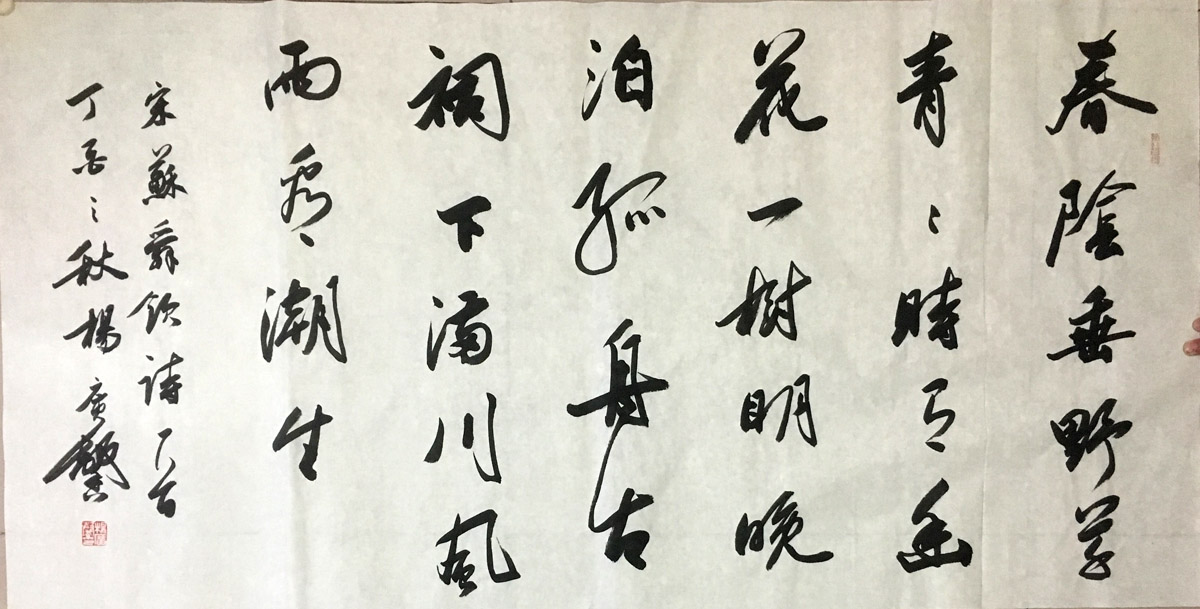 春陰垂野草
青々時有幽
花一樹明晚
泊孤舟古
祠下滿川風
雨看潮生
宋蘇舜欽詩一首
丁酉之秋楊廣馨